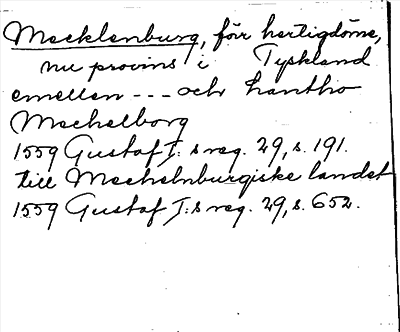 Mecklenburg, för hertigdöme,
nu provins i Tyskland
emellan --- och hantho
Mechelborg
1559 Gustaf I:s reg. 29, s. 191.
till Mechelnburgiske landet
1559 Gustaf I:s reg. 29, s. 652.